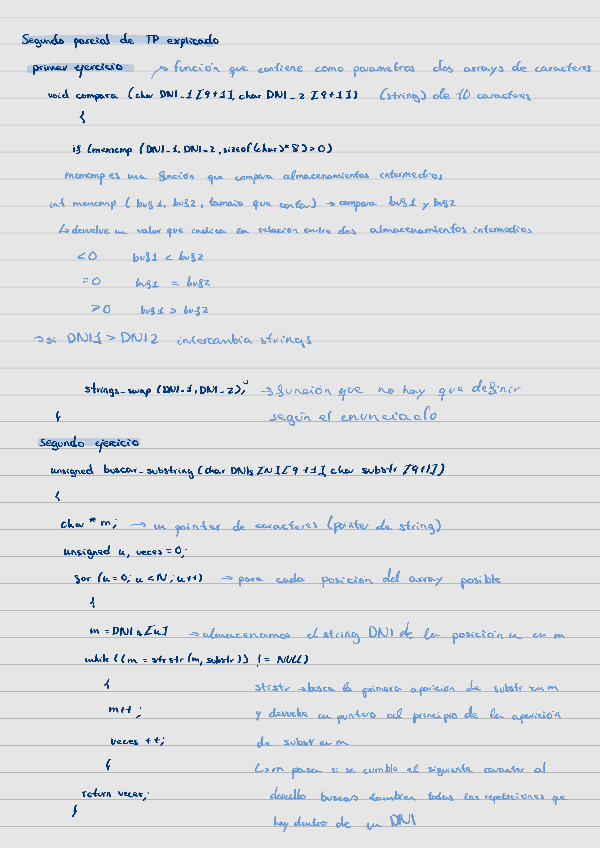 Segundo parcial de TP explicado
primer ejercicio → función que contiene como parametros dos arrays de caracteres
void compara (char DNI_1[9+1], char DNI_2[9+1]) (string) de 10 caracteres
{
if (memcmp (DNI_1, DNI_2, sizeof(char)*8) > 0)
memcmp es una función que compara almacenamientos intermedios
int memcmp ( buf1, buf2, tamaño que contar) → compara buf1 y buf2
↳ devuelve un valor que indica la relación entre dos almacenamientos intermedios
<0 buf1 < buf2
=0 buf1 = buf2
>0 buf1 > buf2
→ si DNI1 > DNI2 intercambia strings
strings_swap (DNI_1, DNI_2); → función que no hay que definir
} según el enunciado
Segundo ejercicio
unsigned buscar_substring (char DNIs[N][9+1], char substr[9+1])
{
char * m; → un pointer de caracteres (pointer de string)
unsigned u, veces = 0;
for (u=0; u<N; u++) → para cada posición del array posible
{
m = DNIs[u] → almacenamos el string DNI de la posición u en m
while ((m = strstr(m, substr)) != NULL)
{ strstr → busca la primera aparición de substr en m
m++; y devuelve un puntero al principio de la aparición
veces ++; de substr en m
} ↳ m pasa si se cumple el siguiente caracter al
return veces; buscar tambien todas las repeticiones que
} hay dentro de un DNI